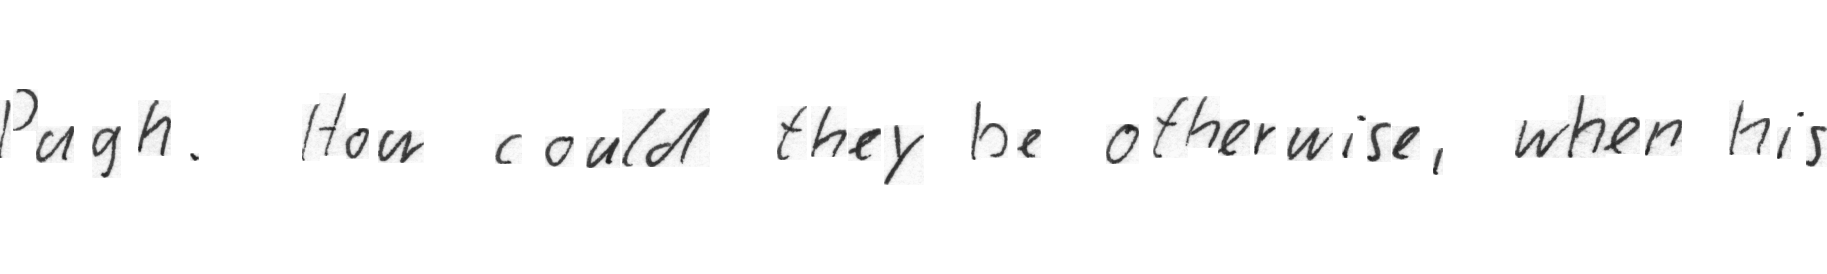 Pugh. How could they be otherwise, when his